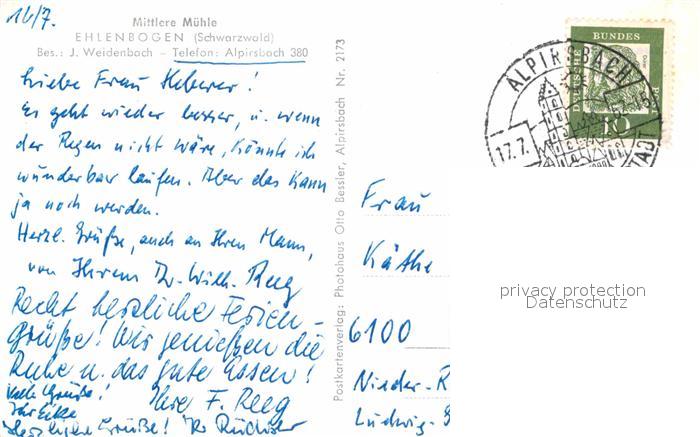 16/7.
Mittlere Mühle
EHLENBOGEN (Schwarzwald)
Bes.: J. Weidenbach - Telefon: Alpirsbach 380
Liebe Frau Heberer!
Es geht wieder besser, u. wenn
der Regen nicht wäre, könnte ich
wunderbar laufen. Aber das kann
ja noch werden.
Herzl. Grüße, auch an Ihren Mann,
von Ihrem Dr. Wilh. Reeg
Recht herzliche Ferien-
grüße! Wir genießen die
Ruhe u. das gute Essen!
Ihre F. Reeg
Viele Grüße!
Ihr Eike
Herzliche Grüße!
Postkartenverlag: Photohaus Otto Bessler, Alpirsbach Nr. 2173
DEUTSCHE BUNDESPOST
10
ALPIRSBACH
17.7.
Frau
Käthe
6100
Nieder-R
Ludwig-
privacy protection
Datenschutz